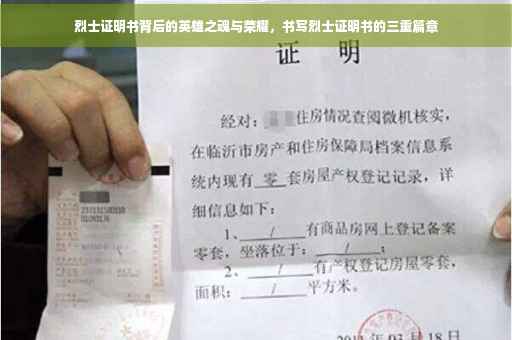 烈士证明书背后的英雄之魂与荣耀，书写烈士证明书的三重篇章
证 明
经对：住房情况查阅微机核实，
在临沂市房产和住房保障局档案信息系
统内现有 零 套房屋产权登记记录，详
细信息如下：
1、 / 有商品房网上登记备案
零套，坐落位于： / ；
2、 / 有产权登记房屋零套，
面积： / 平方米。
03月18日